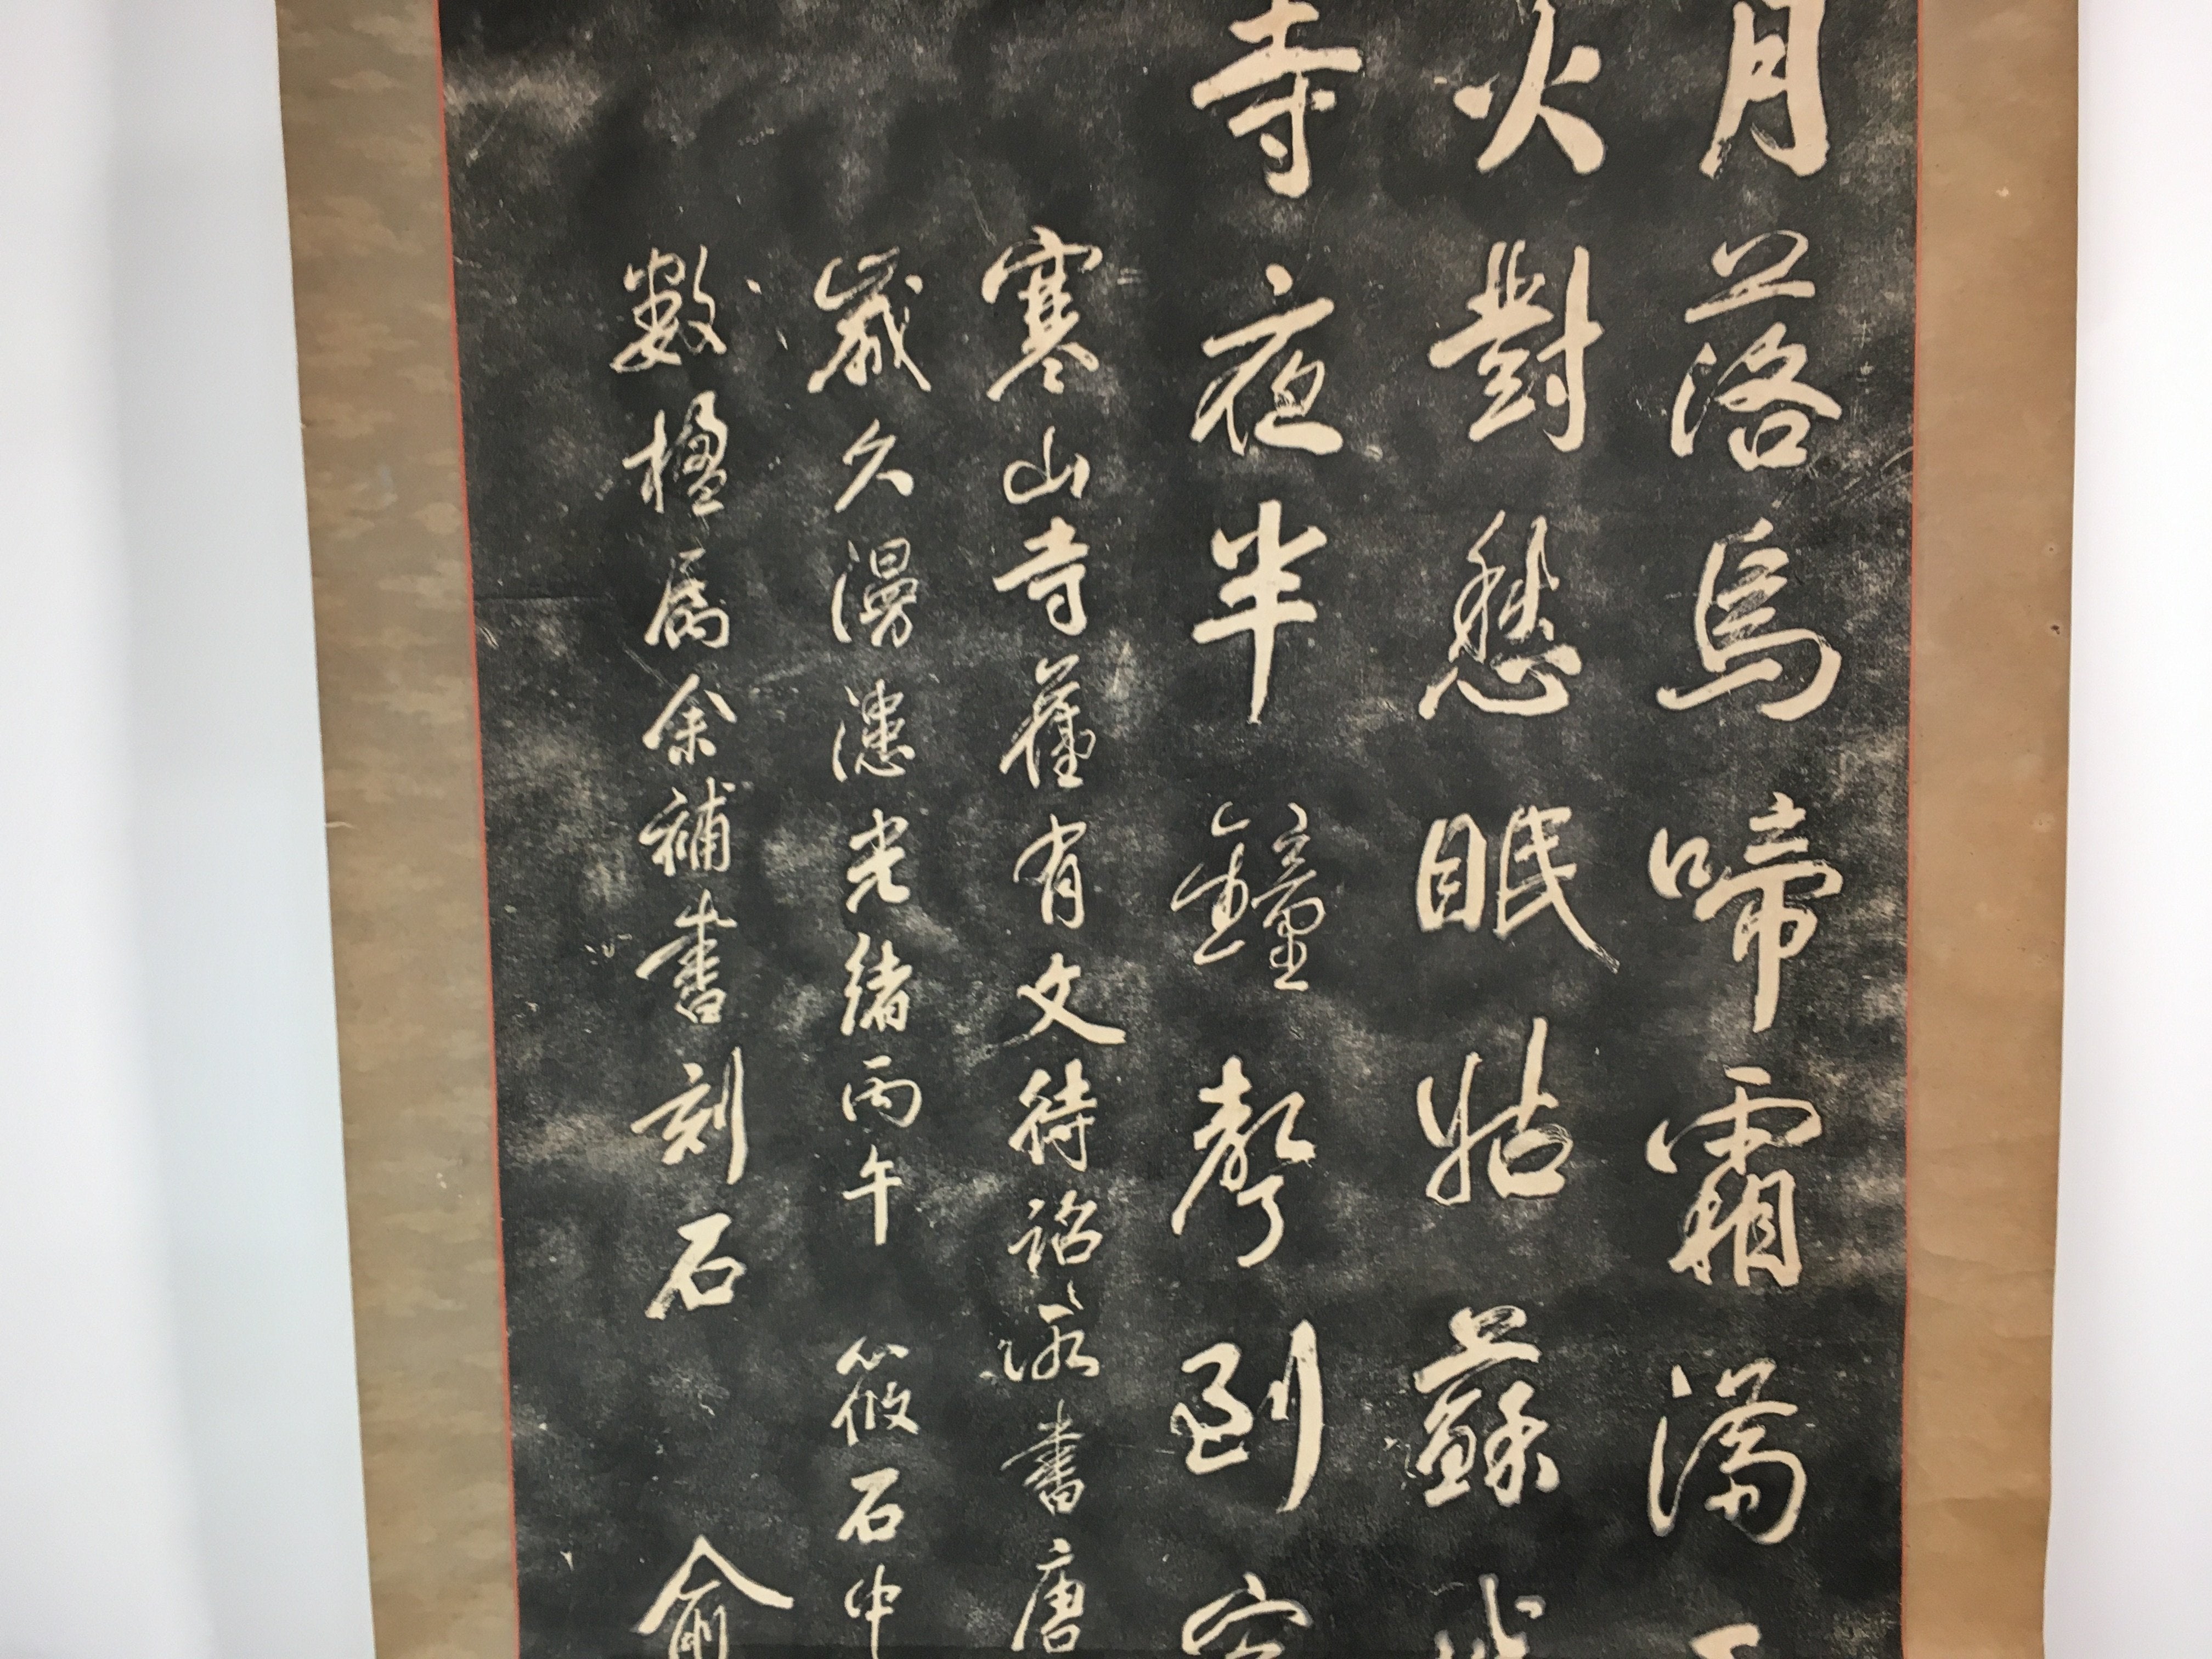 月落烏啼霜滿
火對愁眠姑蘇
寺夜半鐘聲到客
寒山寺舊有文待詔所書唐
歲久漫漶光緒丙午筱石中
數楹屬余補書刻石俞